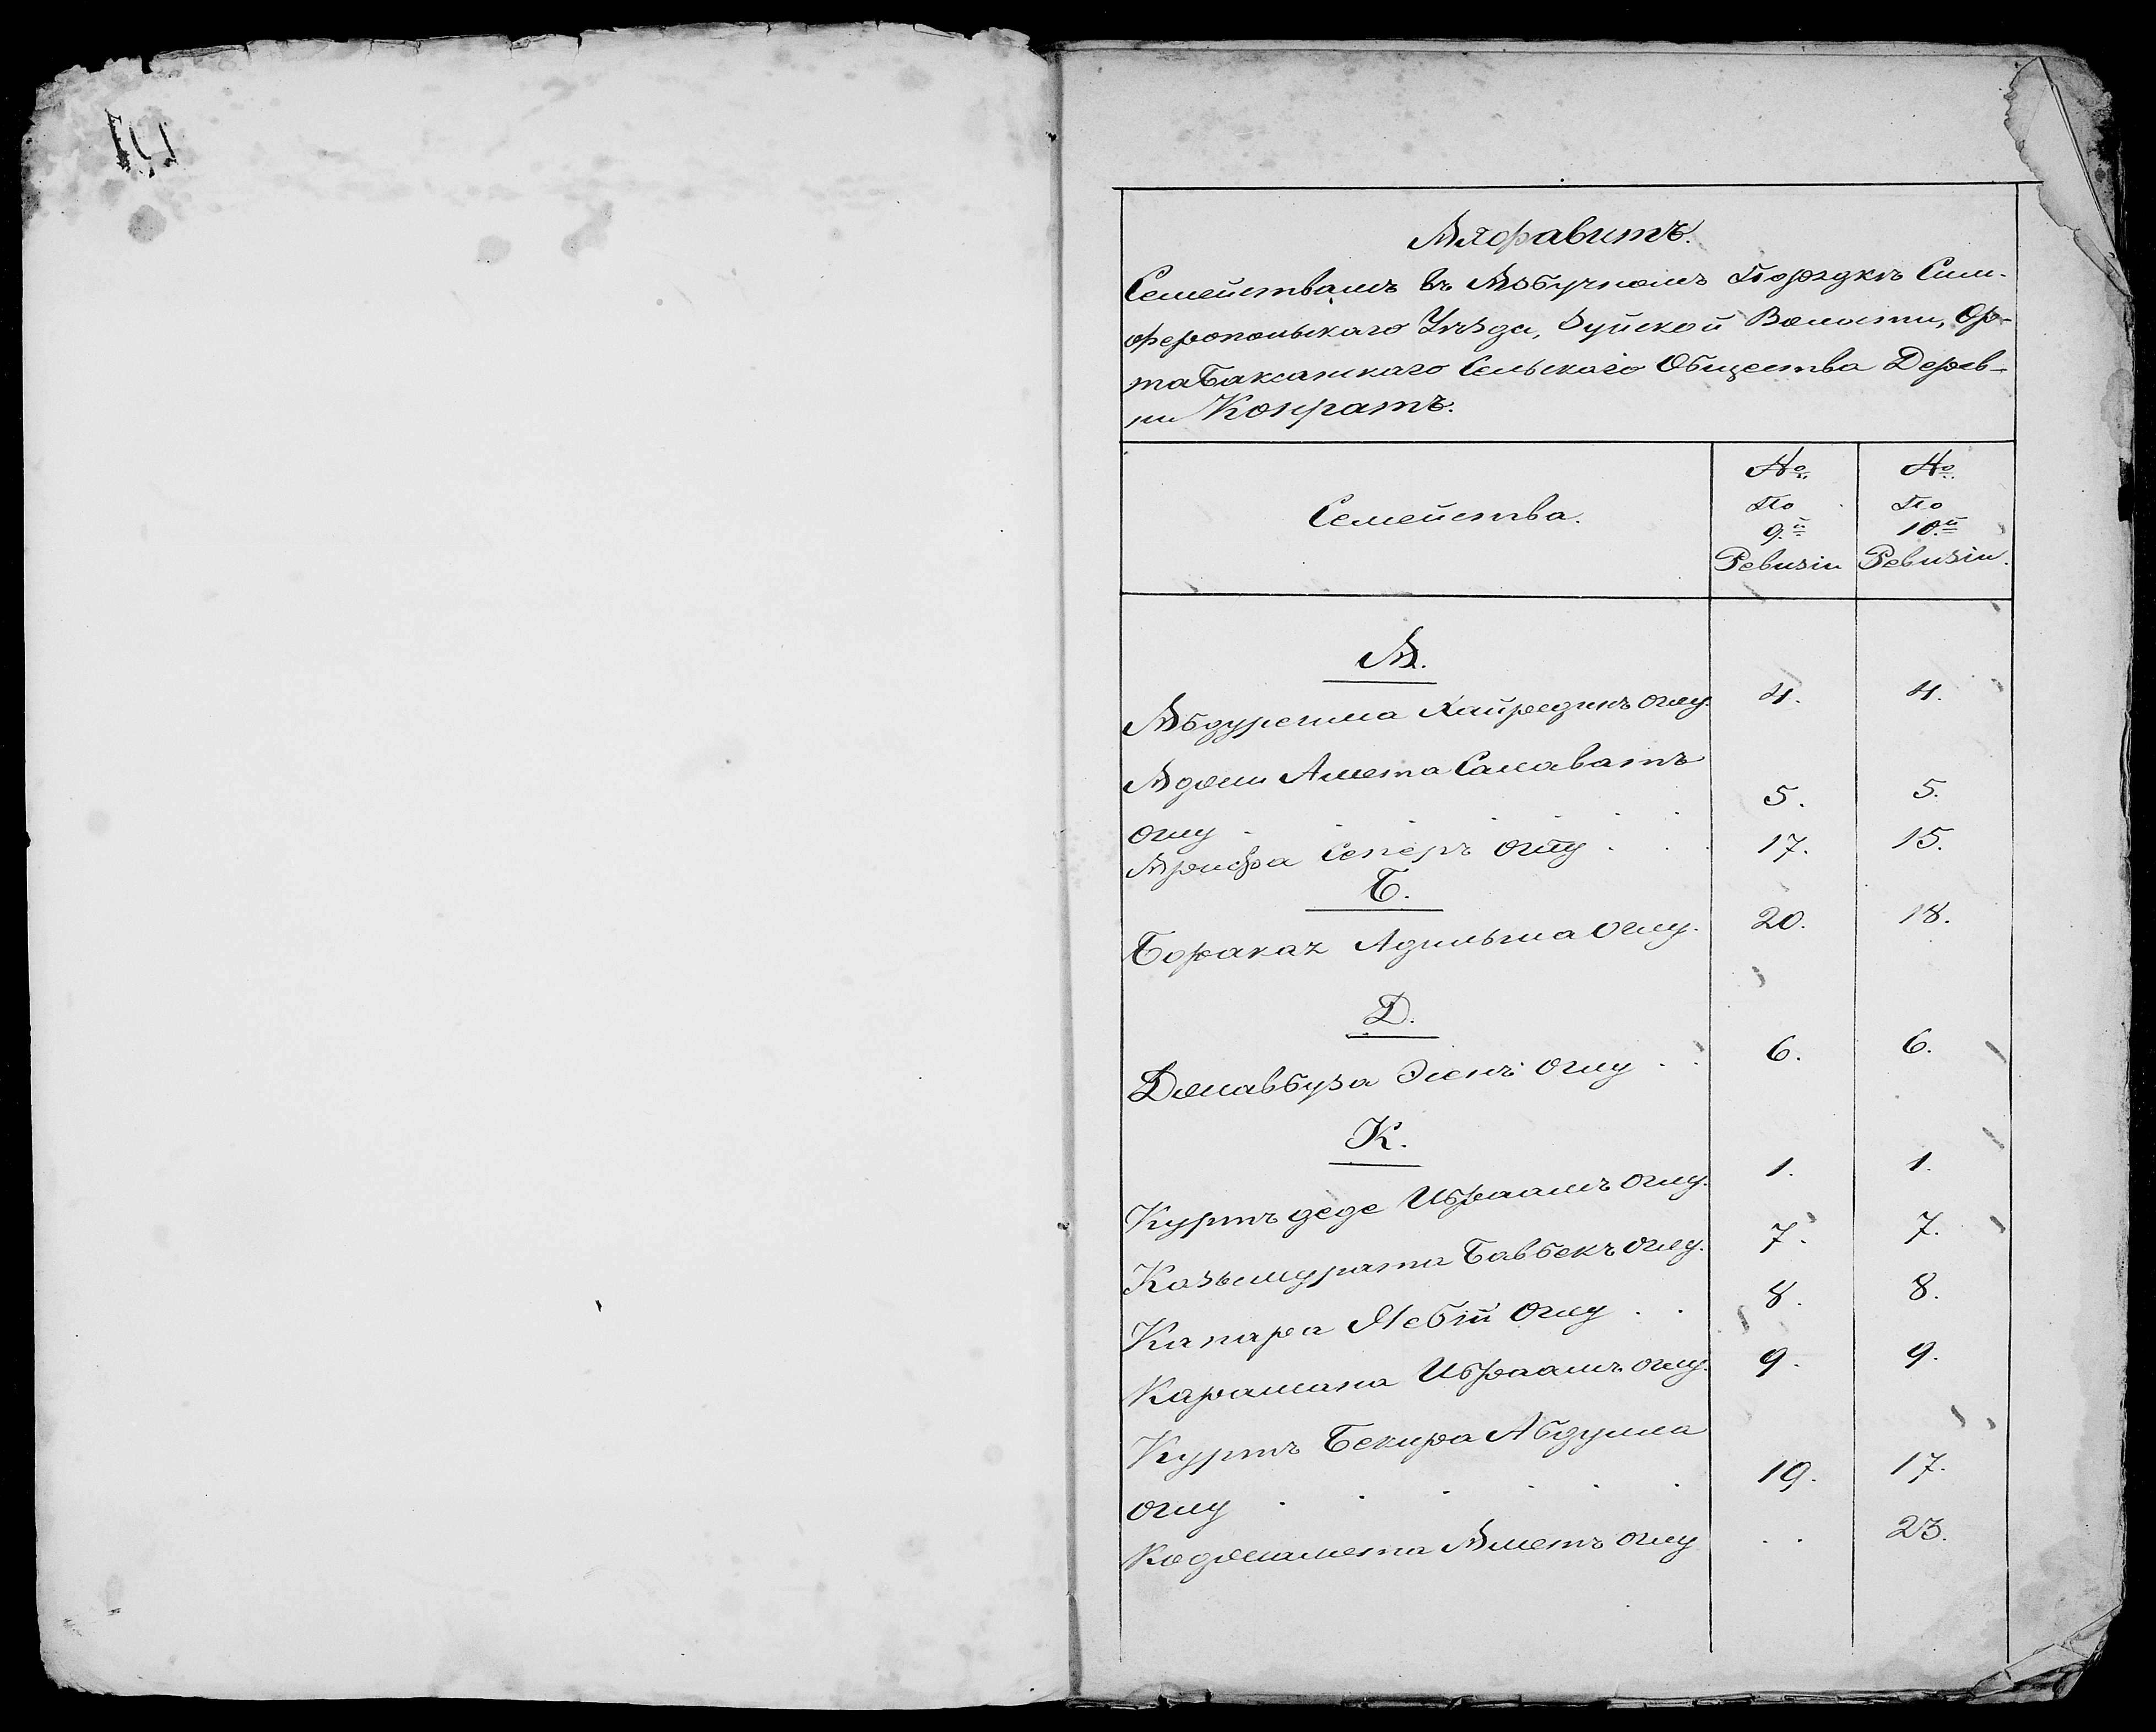 Алфавитъ.
Семействамъ въ Азбучномъ Порядкѣ Сим-
феропольскаго Уѣзда, Зуйской Волости, Ор-
та Баксанскаго Сельскаго Общества Дерев-
ни Конратъ.
Семейства.
№ По 9.й Ревизіи
№ По 10.й Ревизіи.
А.
Абдурешида Хайрединъ оглу. 4. 4.
Аджи Амета Салаватъ
оглу . . . . . . 5. 5.
Арифа Сеперъ оглу . . . 17. 15.
Б.
Боракаz Адильша оглу. 20. 18.
Д.
Джавбура Эсенъ оглу . . 6. 6.
К.
Куртъ деде Ибраамъ оглу. 1. 1.
Казьмурата Бавбекъ оглу. 7. 7.
Капара Небій оглу . . 8. 8.
Карамана Ибраамъ оглу. 9. 9.
Куртъ Бекира Абдулла
оглу . . . . . . 19. 17.
Коджамета Аметъ оглу . . 23.